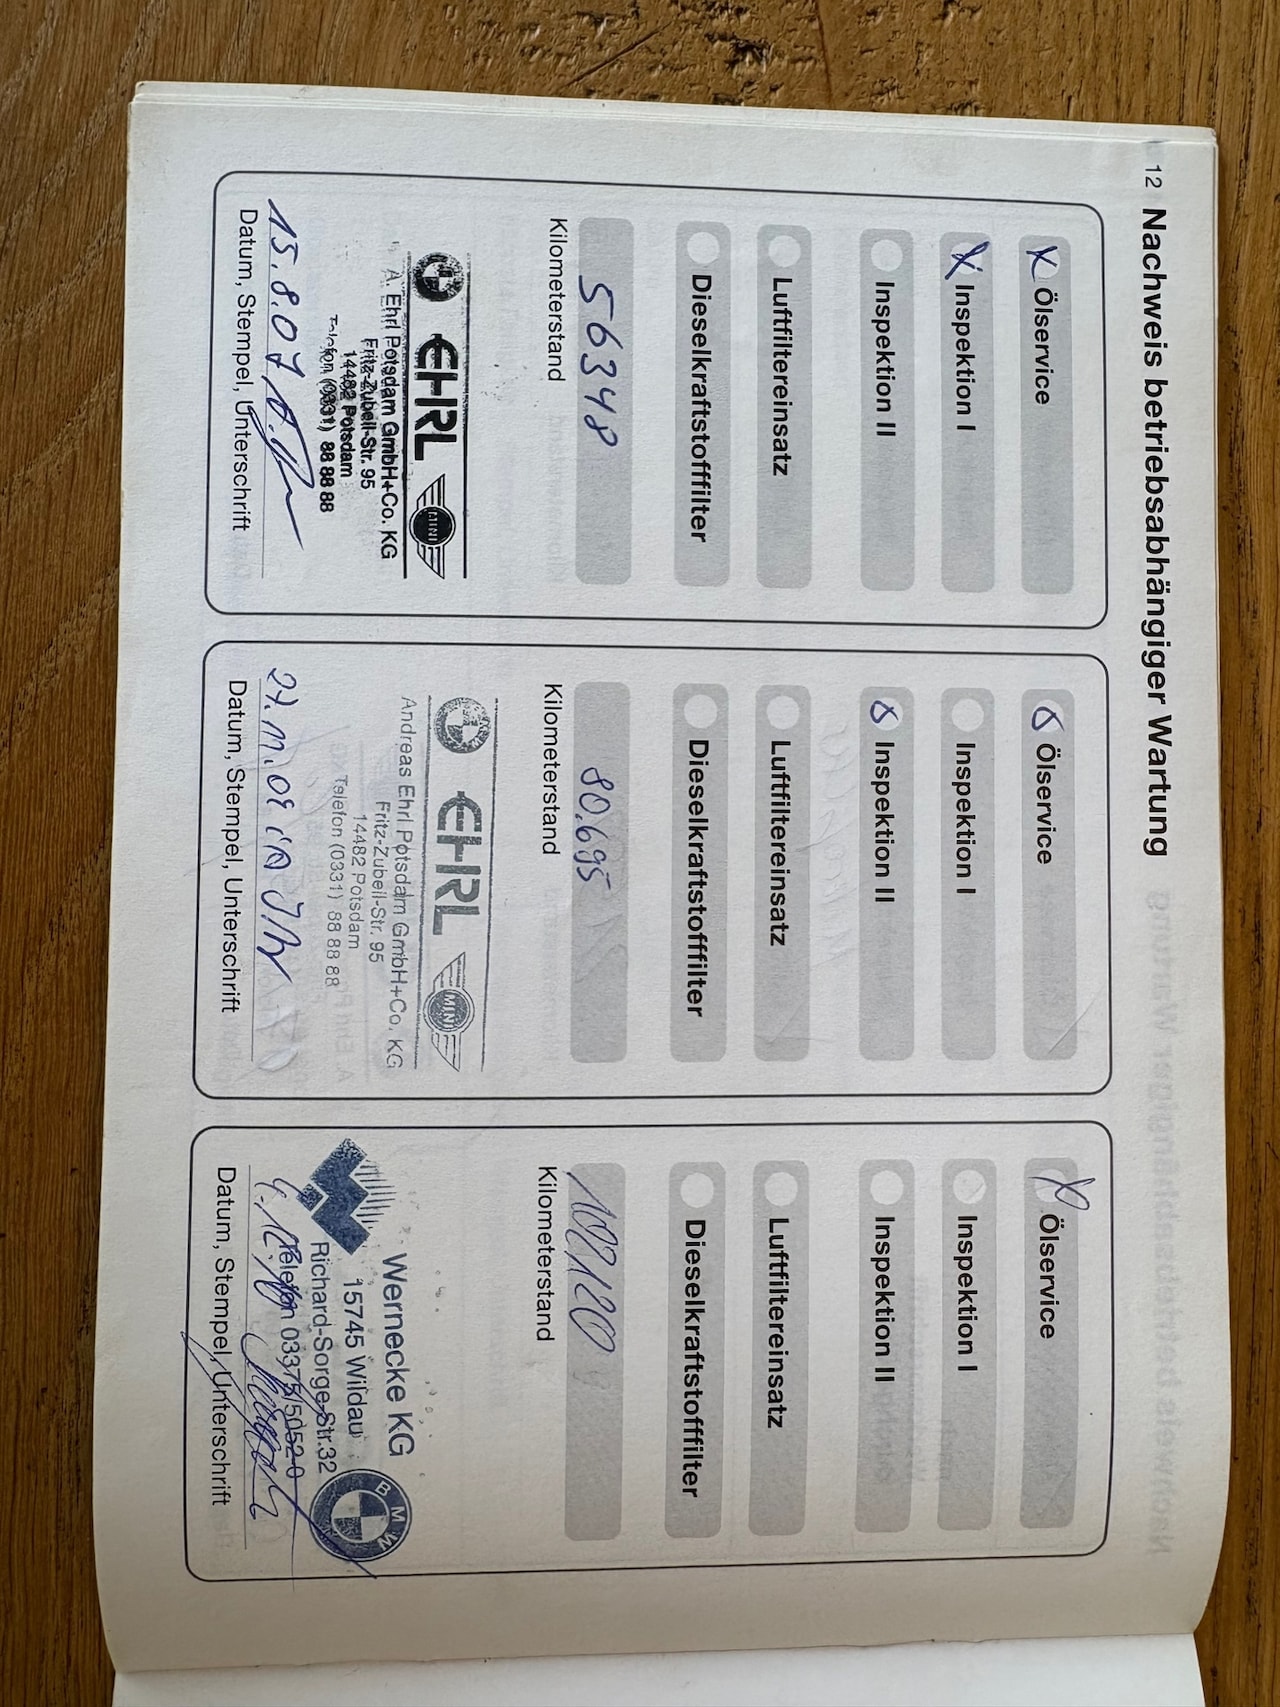 12 Nachweis betriebsabhängiger Wartung
x Ölservice
x Inspektion I
Inspektion II
Luftfiltereinsatz
Dieselkraftstofffilter
56348
Kilometerstand
EHRL
MINI
A. Ehrl Potsdam GmbH+Co. KG
Fritz-Zubeil-Str. 95
14482 Potsdam
Telefon (0331) 88 88 88
15.8.07
Datum, Stempel, Unterschrift
x Ölservice
Inspektion I
x Inspektion II
Luftfiltereinsatz
Dieselkraftstofffilter
80.695
Kilometerstand
EHRL
MINI
Andreas Ehrl Potsdam GmbH+Co. KG
Fritz-Zubeil-Str. 95
14482 Potsdam
Telefon (0331) 88 88 88
Datum, Stempel, Unterschrift
x Ölservice
Inspektion I
Inspektion II
Luftfiltereinsatz
Dieselkraftstofffilter
102120
Kilometerstand
Wernecke KG
15745 Wildau
Richard-Sorge-Str.32
Telefon 03375/5052-0
BMW
Datum, Stempel, Unterschrift